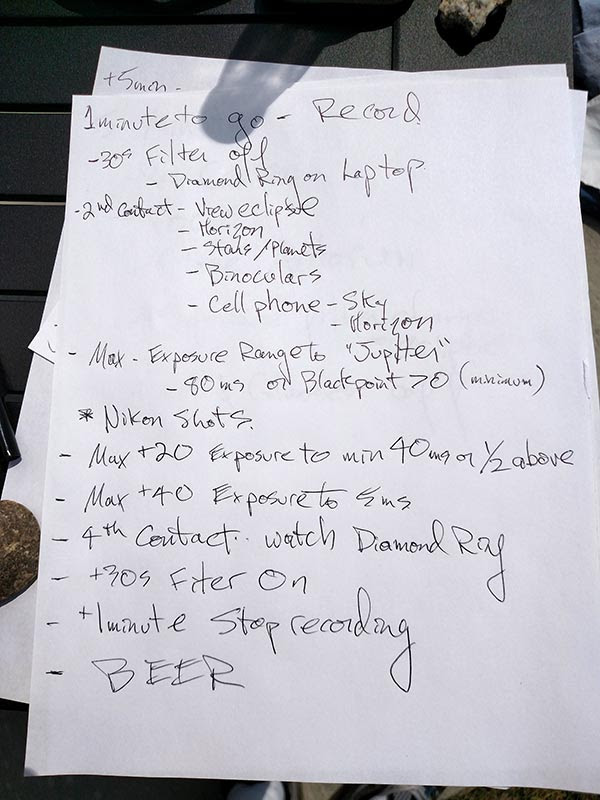 +5min -
1 minute to go - Record
-30s Filter off
- Diamond Ring on Laptop
- 2nd Contact - View eclipse
- Horizon
- Stars/Planets
- Binoculars
- Cell phone - Sky
- Horizon
- Max - Exposure Range to "Jupiter"
- 80ms or Blackpoint >0 (minimum)
* Nikon Shots.
- Max +20 Exposure to min 40ms or 1/2 above
- Max +40 Exposure to 5ms
- 4th Contact. watch Diamond Ring
- +30s Fiter On
- +1minute Stop recording
- BEER